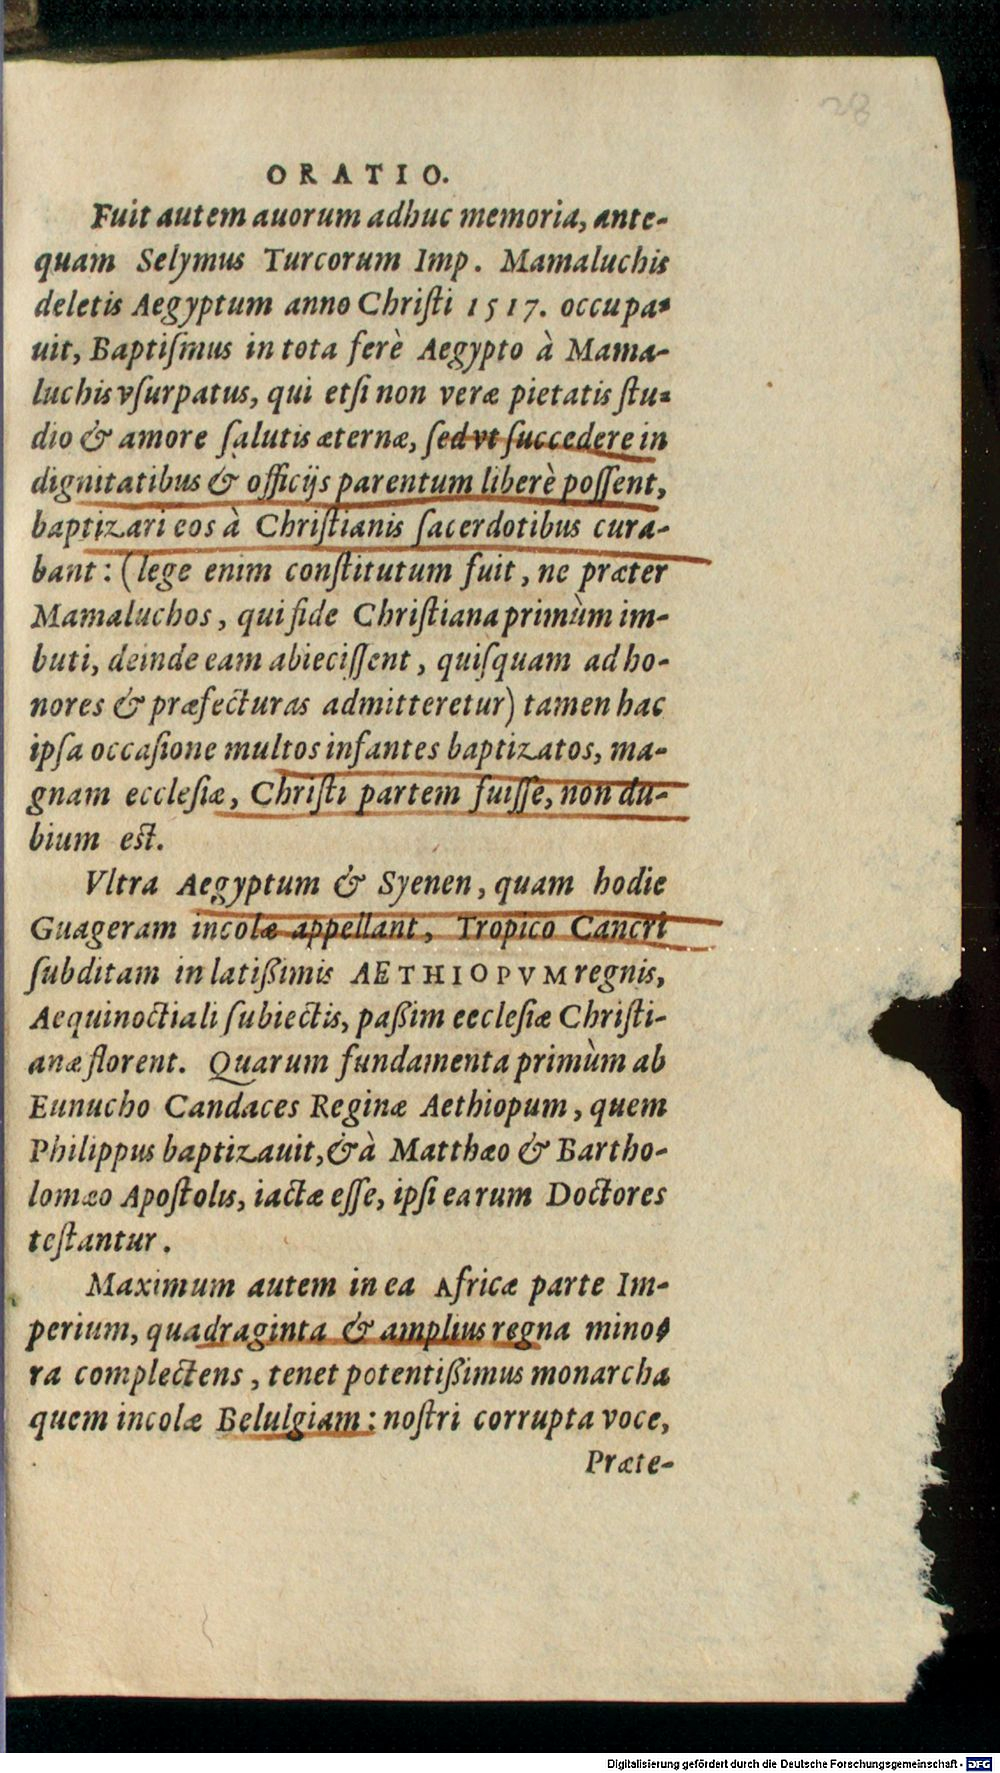 28
ORATIO.
Fuit autem auorum adhuc memoria, ante-
quam Selymus Turcorum Imp. Mamaluchis
deletis Aegyptum anno Chriſti 1517. occupa-
uit, Baptiſmus in tota ferè Aegypto à Mama-
luchis vſurpatus, qui etſi non veræ pietatis ſtu-
dio & amore ſalutis æternæ, ſed vt ſuccedere in
dignitatibus & officijs parentum liberè poſſent,
baptizari eos à Chriſtianis ſacerdotibus cura-
bant: (lege enim conſtitutum fuit, ne præter
Mamaluchos, qui fide Chriſtiana primùm im-
buti, deinde eam abieciſſent, quiſquam ad ho-
nores & præfecturas admitteretur) tamen hac
ipſa occaſione multos infantes baptizatos, ma-
gnam eccleſiæ, Chriſti partem fuiſſe, non du-
bium eſt.
Vltra Aegyptum & Syenen, quam hodie
Guageram incolæ appellant, Tropico Cancri
ſubditam in latißimis AETHIOPVM regnis,
Aequinoctiali ſubiectis, paßim eccleſiæ Chriſti-
anæ florent. Quarum fundamenta primùm ab
Eunucho Candaces Reginæ Aethiopum, quem
Philippus baptizauit, & à Matthæo & Bartho-
lomæo Apoſtolis, iactæ eſſe, ipſi earum Doctores
teſtantur.
Maximum autem in ea Africæ parte Im-
perium, quadraginta & amplius regna mino-
ra complectens, tenet potentißimus monarcha
quem incolæ Belulgiam: noſtri corrupta voce,
Præte-
Digitalisierung gefördert durch die Deutsche Forschungsgemeinschaft - DFG